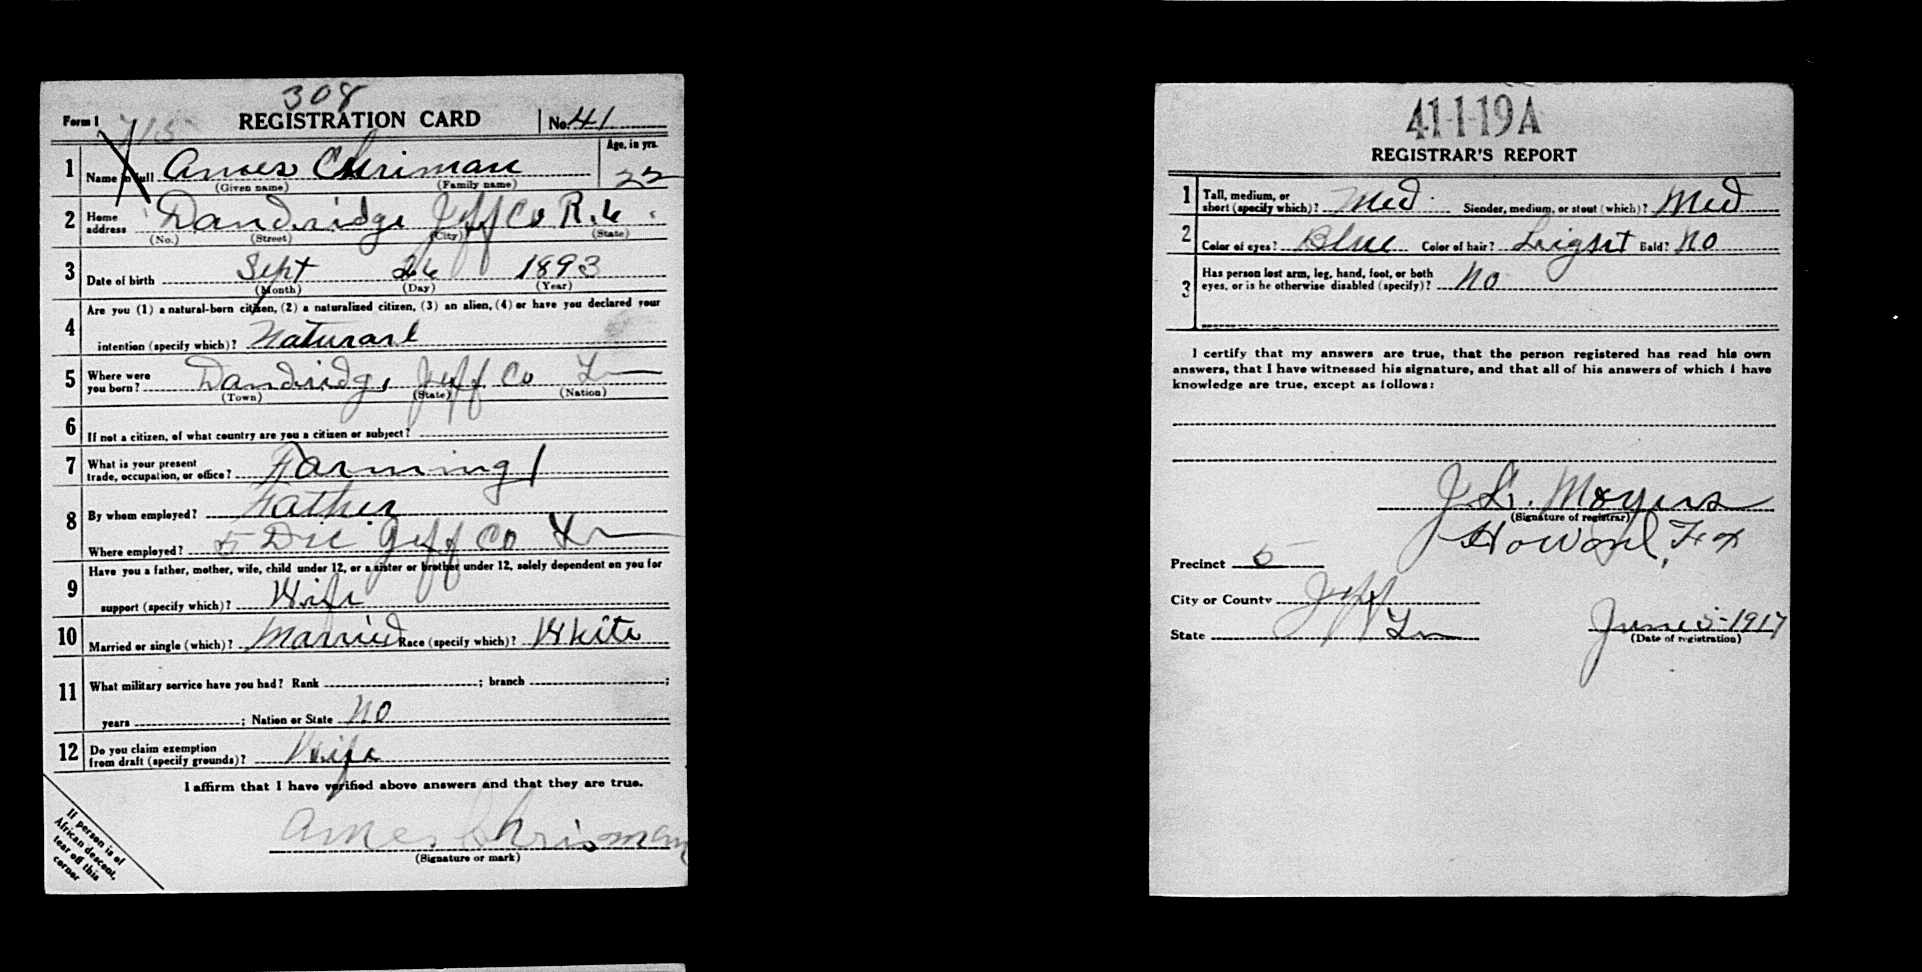 308
Form 1 715 REGISTRATION CARD No. 41
Age, in yrs.
1 Name in full Amoes Chriman 22
(Given name) (Family name)
2 Home address Dandridge Jeff Co R. 6
(No.) (Street) (City) (State)
3 Date of birth Sept 26 1893
(Month) (Day) (Year)
4 Are you (1) a natural-born citizen, (2) a naturalized citizen, (3) an alien, (4) or have you declared your
intention (specify which)? Naturarl
5 Where were you born? Dandridge Jeff Co Tn
(Town) (State) (Nation)
6 If not a citizen, of what country are you a citizen or subject?
7 What is your present trade, occupation, or office? Farming 1
8 By whom employed? Father
Where employed? 5 Dic Jeff Co Tn
9 Have you a father, mother, wife, child under 12, or a sister or brother under 12, solely dependent on you for
support (specify which)? Wife
10 Married or single (which)? Married Race (specify which)? White
11 What military service have you had? Rank ; branch ;
years ; Nation or State No
12 Do you claim exemption from draft (specify grounds)? Wife
I affirm that I have verified above answers and that they are true.
Ames Chrisman
(Signature or mark)
If person is of
African descent,
tear off this
corner
41-1-19 A
REGISTRAR'S REPORT
1 Tall, medium, or short (specify which)? Med Slender, medium, or stout (which)? Med
2 Color of eyes? Blue Color of hair? Light Bald? No
3 Has person lost arm, leg, hand, foot, or both
eyes, or is he otherwise disabled (specify)? No
I certify that my answers are true, that the person registered has read his own
answers, that I have witnessed his signature, and that all of his answers of which I have
knowledge are true, except as follows:
J. L. Moyers
(Signature of registrar)
Howard Fox
Precinct 5
City or County Jeff
State Tn June 5-1917
(Date of registration)